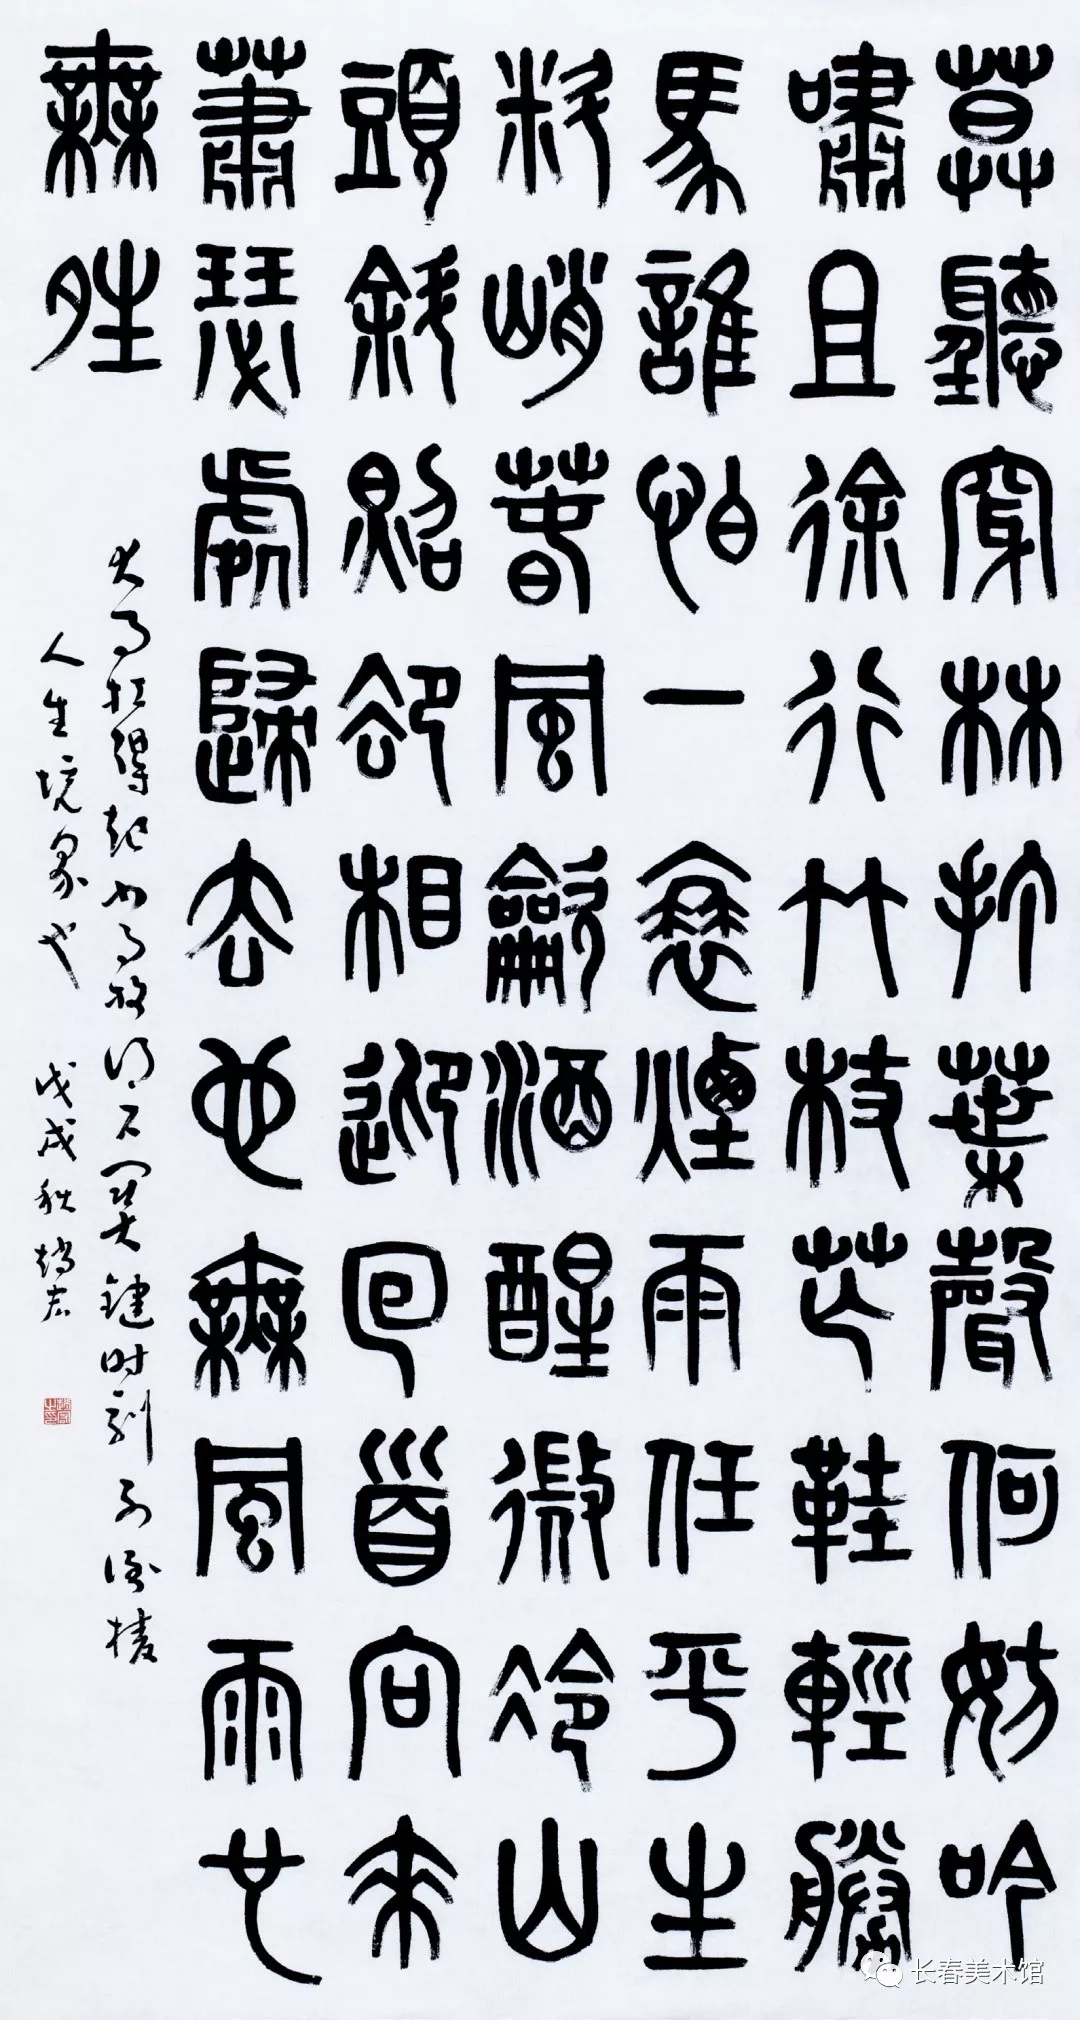 莫聽穿林打葉聲何妨吟
嘯且徐行竹杖芒鞋輕勝
馬誰怕一蓑煙雨任平生
料峭春風龡酒醒微冷山
頭斜照卻相迎回首向來
蕭瑟處歸去也無風雨也
無夝
大事扛得起小事放得下关键时刻不
人生境象也 戊戌秋
长春美术馆